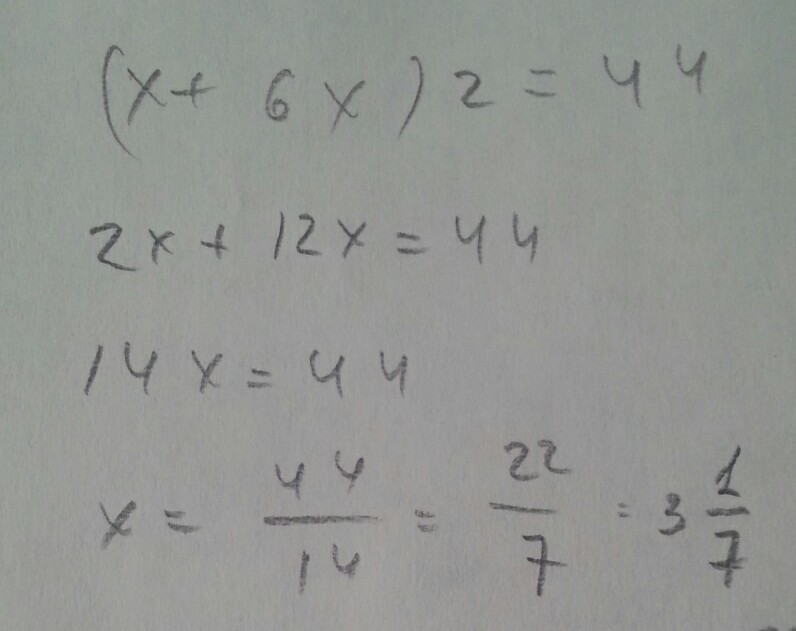 (x + 6x)2 = 44
2x + 12x = 44
14x = 44
x = 44/14 = 22/7 = 3 1/7